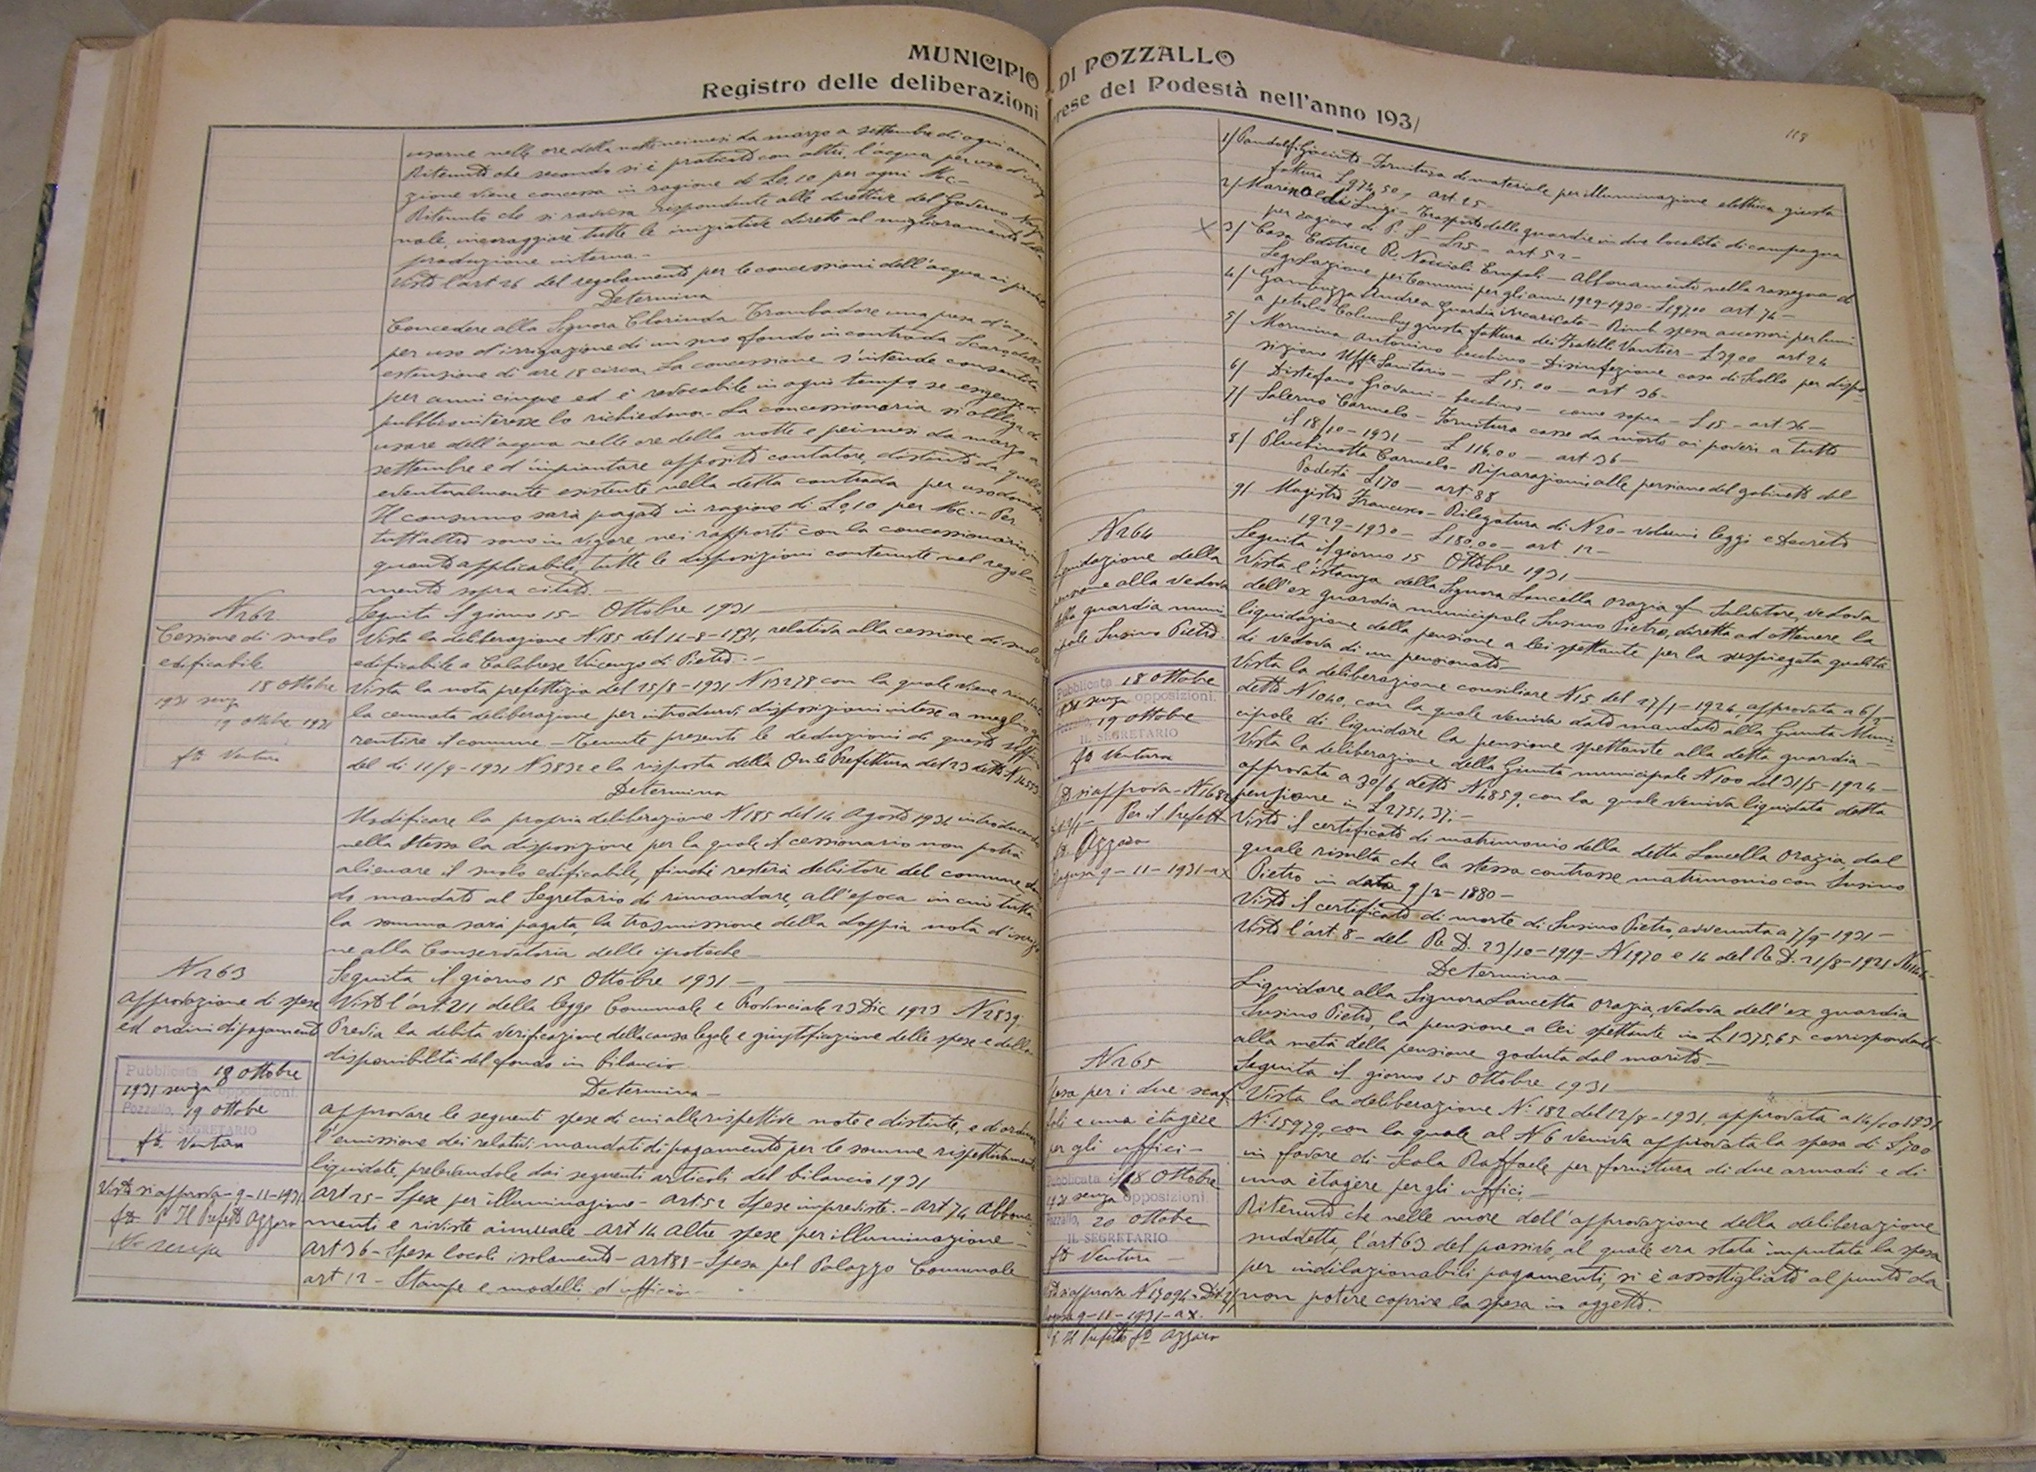 MUNICIPIO DI POZZALLO
Registro delle deliberazioni prese del Podestà nell'anno 1931
usarne nelle ore della notte nei mesi da marzo a settembre di ogni anno
Ritenuto che secondo si è praticato con altri, l'acqua per uso d'irriga
zione viene concessa in ragione di L 0,10 per ogni Mc.-
Ritenuto che si ravvisa rispondente alle direttive del Governo Nazio
nale, incoraggiare tutte le iniziative dirette al miglioramento della
produzione interna.-
Visto l'art 26 del regolamento per le concessioni dell'acqua ai privati
Determina
Concedere alla Signora Clorinda Trombadore una presa d'acqua
per uso d'irrigazione di un suo fondo in contrada
estensione di are 18 circa. La concessione s'intende consentita
per anni cinque ed è revocabile in ogni tempo se esigenze di
pubblico interesse lo richiedono.- La concessionaria si obbliga di
usare dell'acqua nelle ore della notte e pei mesi da marzo a
settembre e d'impiantare apposito contatore, distinto da quello
eventualmente esistente nella detta contrada per uso domestico
Il consumo sarà pagato in ragione di L 0,10 per Mc.- Per
tutt'altro sono in vigore nei rapporti con la concessionaria, in
quanto applicabili, tutte le disposizioni contenute nel regola
mento sopra citato.-
N 262
Cessione di suolo
edificabile
18 Ottobre
1931 senza
19 ottobre 1931
fto Ventura
Seguita il giorno 15- Ottobre 1931
Vista la deliberazione N 185 del 14-8-1931, relativa alla cessione di suolo
edificabile a Calabrese Vincenzo di Pietro.-
Vista la nota prefettizia del 25/8-1931 N 13278 con la quale viene rinviata
la cennata deliberazione per introdurvi disposizioni intese a meglio ga
rentire il comune - Tenute presenti le deduzioni di questo ufficio
del dì 11/9-1931 N 3832 e la risposta della On.le Prefettura del 23 detto N 14553
Determina
Modificare la propria deliberazione N 185 del 14 Agosto 1931 introducendo
nella stessa la disposizione per la quale il cessionario non potrà
alienare il suolo edificabile, finchè resterà debitore del comune dan
do mandato al Segretario di rimandare, all'epoca in cui tutta
la somma sarà pagata, la trasmissione della doppia nota d'iscrizio
ne alla Conservatoria delle ipoteche-
N 263
Approvazione di spese
ed ordini di pagamento
Pubblicata 18 Ottobre
1931 senza opposizioni.
Pozzallo, 19 ottobre
IL SEGRETARIO
fto Ventura
Visto si approva- 9-11-1931
fto P. Il Prefetto Azzaro
Seguita il giorno 15 Ottobre 1931-
Visto l'art 211 della legge Comunale e Provinciale 23 Dic 1923 N 2839
Previa la debita verificazione della causa legale e giustificazione delle spese e della
disponibilità del fondo in bilancio
Determina-
approvare le seguenti spese di cui alle rispettive note e distinte, e di ordinare
l'emissione dei relativi mandati di pagamento per le somme rispettivamente
liquidate, prelevandole dai seguenti articoli del bilancio 1931
art 25- Spese per illuminazione- art 52 Spese impreviste- art 74 Abbona
menti e riviste annuale- art 14 Altre spese per illuminazione-
art 36- Spesa locali isolamento- art 88- Spesa pel Palazzo Comunale
art 12- Stampe e modelli d'ufficio-
118
1/ Pandolfi Giacinto- Fornitura di materiale per illuminazione elettrica giusta
fattura L 974,50, art. 25-
2/ Marinoldi Luigi- Trasporto delle guardie in due località di campagna
per ragione di P. S- L 25- art 52-
3/ Casa Editrice R. Noccioli Empoli- Abbonamento nella rassegna di
Legislazione per i Comuni per gli anni 1929-1930- L 197.00 art. 74-
4/ Gambuzza Andrea Guardia Incaricato- Rimb. spesa accessori per lumi
a petrolio Columbus giusta fattura dei Fratelli Vantier- L 39.00 art 24
5/ Mormina Antonino becchino- Disinfezione casa di Scollo per dispo
sizione Uff.le Sanitario- L 15.00- art 36-
6/ Distefano Giovanni- becchino- come sopra- L 15- art. 36-
7/ Salerno Carmelo- Fornitura casse da morto ai poveri a tutto
il 18/10-1931- L 116.00- art 36-
8/ Pluchinotta Carmelo- Riparazioni alle persiane del gabinetto del
Podestà L 170- art. 88
9/ Magistro Francesco- Rilegatura di N 20- volumi leggi e Decreti
1929-1930- L 180.00- art 12-
N 264
Liquidazione della
pensione alla vedova
della guardia muni
cipale Susino Pietro.
Pubblicata 18 Ottobre
1931 senza opposizioni.
Pozzallo, 19 Ottobre
IL SEGRETARIO
fto Ventura
Per il Prefetto
fto Azzaro
Ragusa 9-11-1931-ax
Seguita il giorno 15 Ottobre 1931
Vista l'istanza della Signora Lancella Orazia di Salvatore, vedova
dell'ex guardia municipale Susino Pietro, diretta ad ottenere la
liquidazione della pensione a lei spettante per la suspiegata qualità
di vedova di un pensionato-
Vista la deliberazione consiliare N 15 del 27/1-1924, approvata a 6/2
detto N 1040, con la quale veniva dato mandato alla Giunta Muni
cipale di liquidare la pensione spettante alla detta guardia-
Vista la deliberazione della Giunta municipale N 100 del 31/5-1924-
approvata a 30/6 detto N 4859, con la quale veniva liquidata detta
pensione in L 2751,31.-
Visto il certificato di matrimonio della detta Lancella Orazia, dal
quale risulta che la stessa contrasse matrimonio con Susino
Pietro in data 9/2-1880-
Visto il certificato di morte di Susino Pietro, avvenuta a 7/9-1931-
Visto l'art. 8- del R. D. 23/10-1919- N 1970 e 14 del R. D. 21/8-1921
Determina-
Liquidare alla Signora Lancella Orazia, vedova dell'ex guardia
Susino Pietro, la pensione a lei spettante in L 1375,65 corrispondente
alla metà della pensione goduta dal marito-
N 265
Spesa per i due scaf
fali e una étagère
per gli uffici-
Pubblicata il 18 Ottobre
1931 senza opposizioni.
Pozzallo, 20 ottobre
IL SEGRETARIO
fto Ventura
Visto si approva N 15094-
Ragusa 9-11-1931-ax.
P. Il Prefetto fto Azzaro
Seguita il giorno 15 Ottobre 1931
Vista la deliberazione N. 182 del 12/8-1931, approvata a 14/10 1931
N. 15979, con la quale al N 6 veniva approvata la spesa di L 700
in favore di Scala Raffaele per fornitura di due armadi e di
una étagère per gli uffici-
Ritenuto che nelle more dell'approvazione della deliberazione
suddetta, l'art 63 del passivo, al quale era stata imputata la spesa
per indilazionabili pagamenti, si è assottigliato al punto da
non potere coprire la spesa in oggetto.